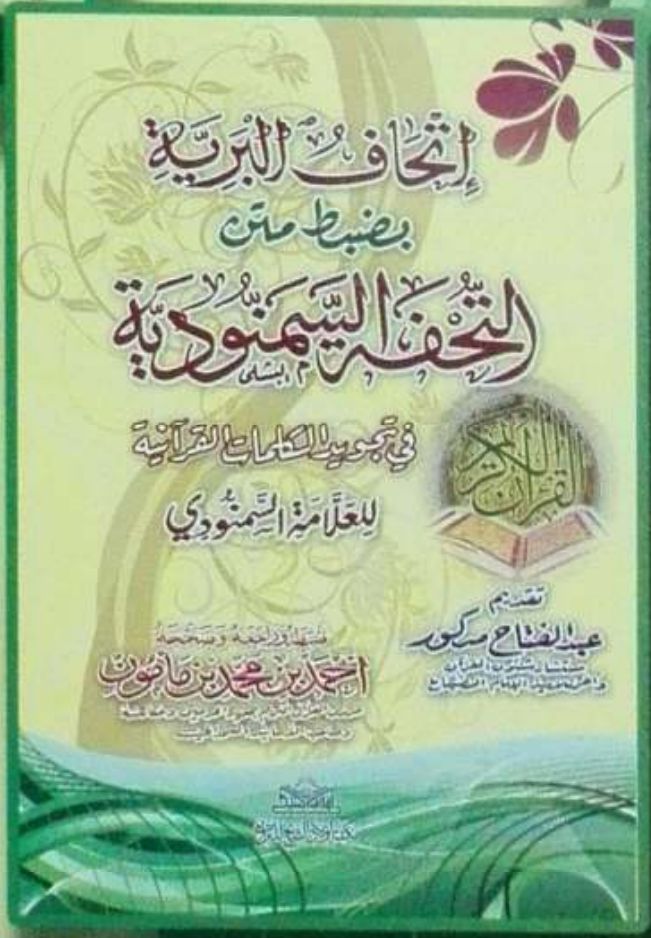 إِتْحَافُ البَرِيَّةِ
بضبط متن
التُّحْفَة السَّمَنُّودِيَّة
في تجويد الكلمات القرآنية
للعَلَّامَة السَّمَنُّودِي
القرآن الكريم
تقديم
عبد الفتاح مدكور
ضبطه وراجعه وصححه
أحمد بن محمد بن مأمون
مكتبة أولاد الشيخ للتراث